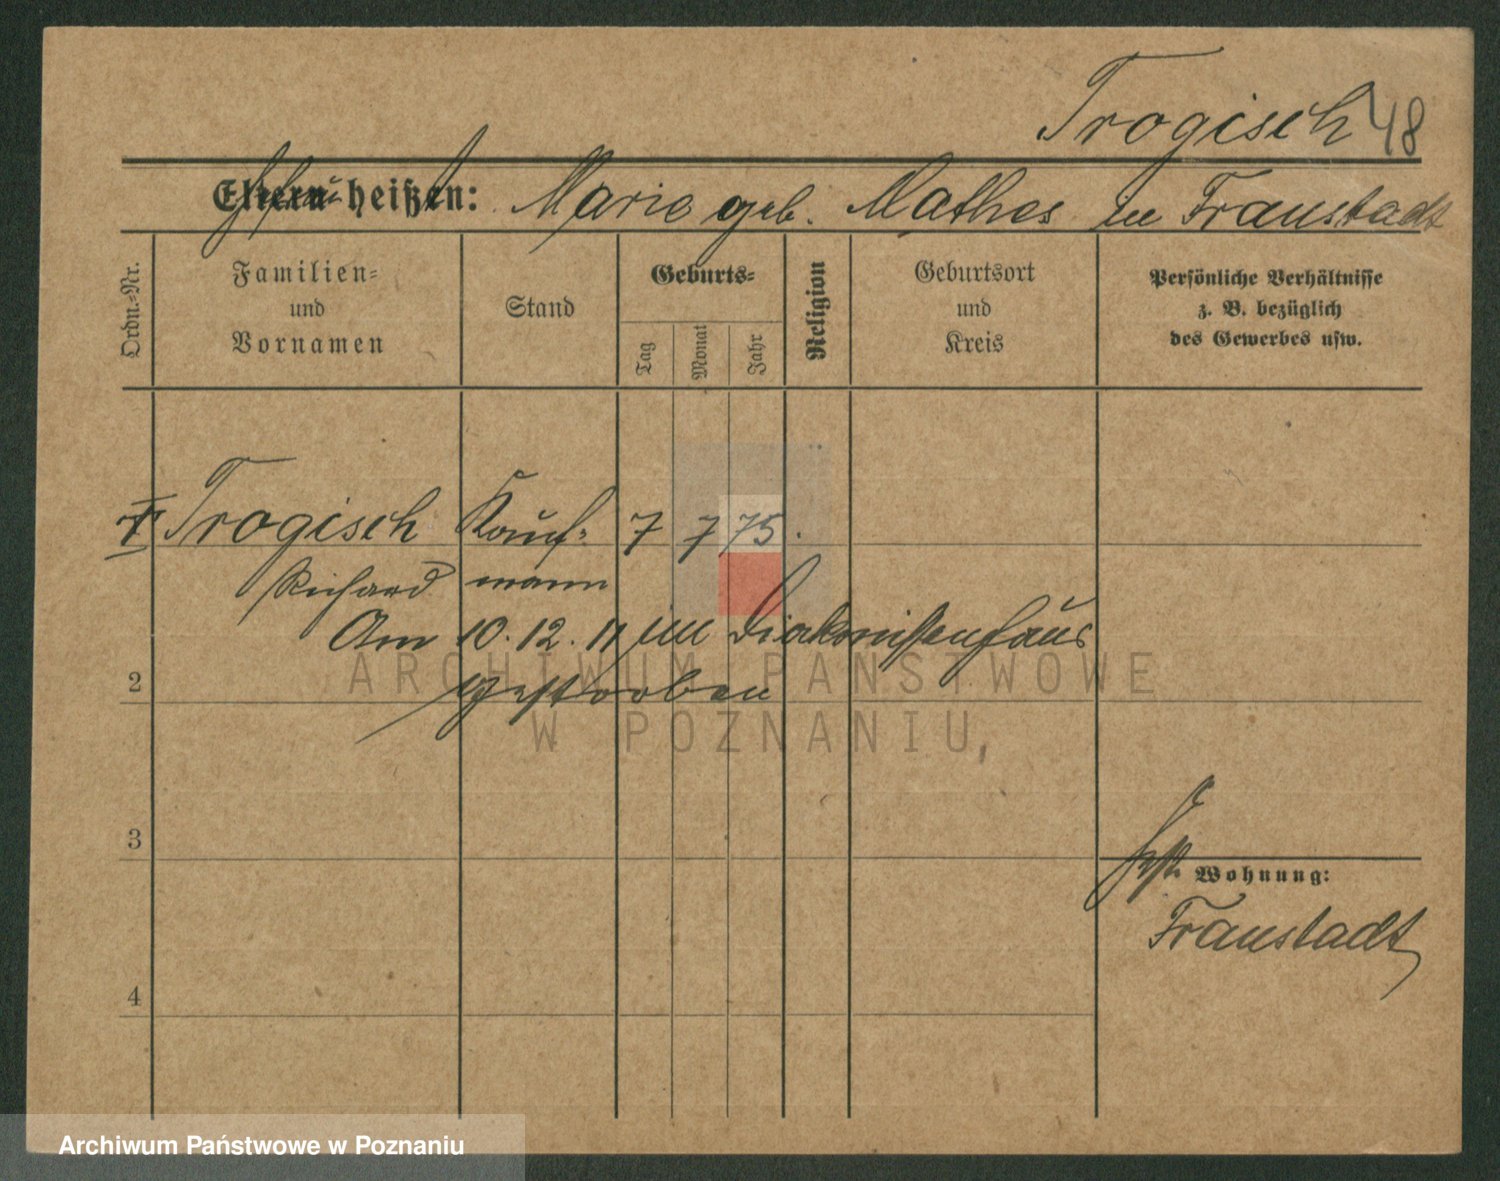 Trogisch 48
Eltern heißen: Marie geb. Mathes in Fraustadt
Ordn.=Nr.
Familien=
und
Vornamen
Stand
Geburts=
Tag
Monat
Jahr
Religion
Geburtsort
und
Kreis
Persönliche Verhältnisse
z. B. bezüglich
des Gewerbes usw.
Trogisch Kauf= 7 7 75.
Richard mann
Am 10. 12. 11 im Diakonissenhaus
gestorben
2
3
4
Wohnung:
Fraustadt
ARCHIWUM PAŃSTWOWE
W POZNANIU
Archiwum Państwowe w Poznaniu